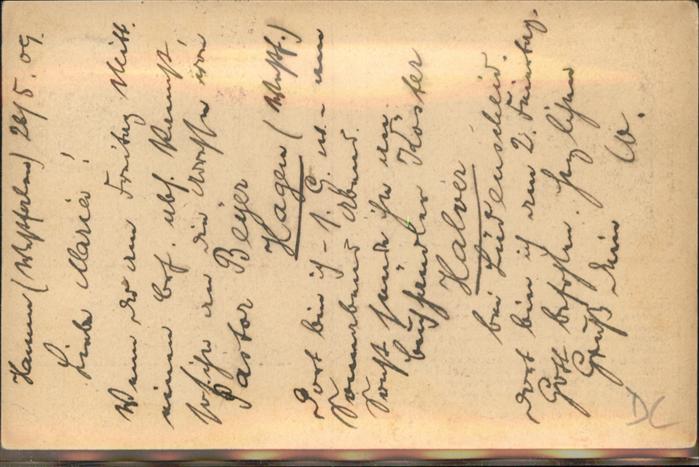 Hamm (Westfalen) 26/5.09.
Liebe Maria!
Wenn du am Freitag Mitt.
einen Brf. abs.
so an die Adresse von
Pastor Beyer
Hagen (Westf.)
Dort bin ich - 1. am
Sonnabend Abend.
Sonst sende ihn an
Buchhändler Köster
Halver
bei Lüdenscheid.
Dort bin ich am 2. Feiertag.
Gott befohlen. Herzlichen
Gruß Dein
W.
DC